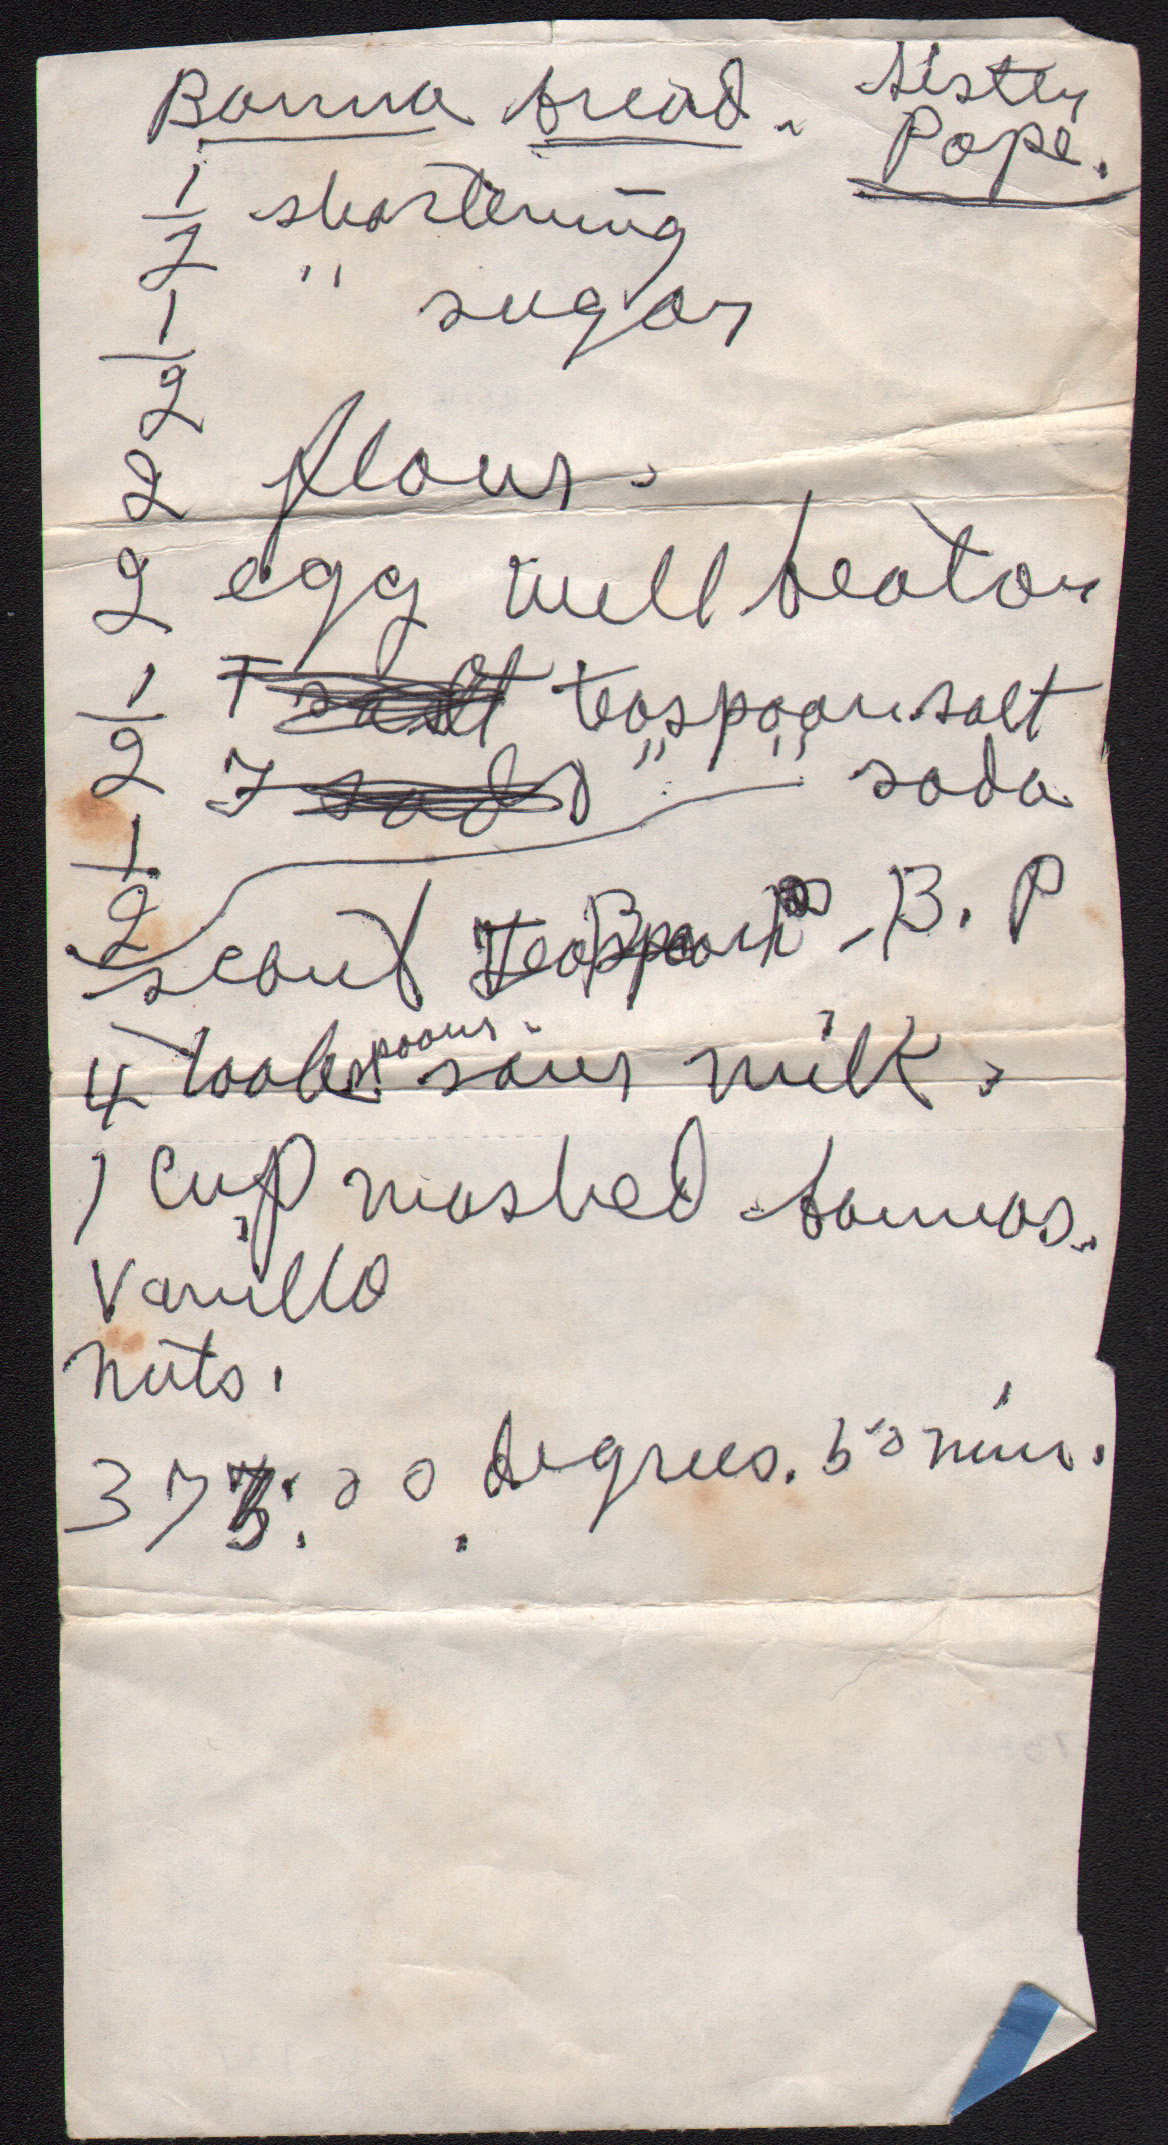 Banna bread. Sister
Pope.
1/2 shortening
1/2 " sugar
2 flour.
2 egg well beaton
1/2 T salt teaspoon salt
1/2 T soda " " soda
scant Teaspoon - B. P
4 table spoons. sour milk.
1 cup mashed bannas.
Vanilla
nuts.
375.00 degrees. 50 min.